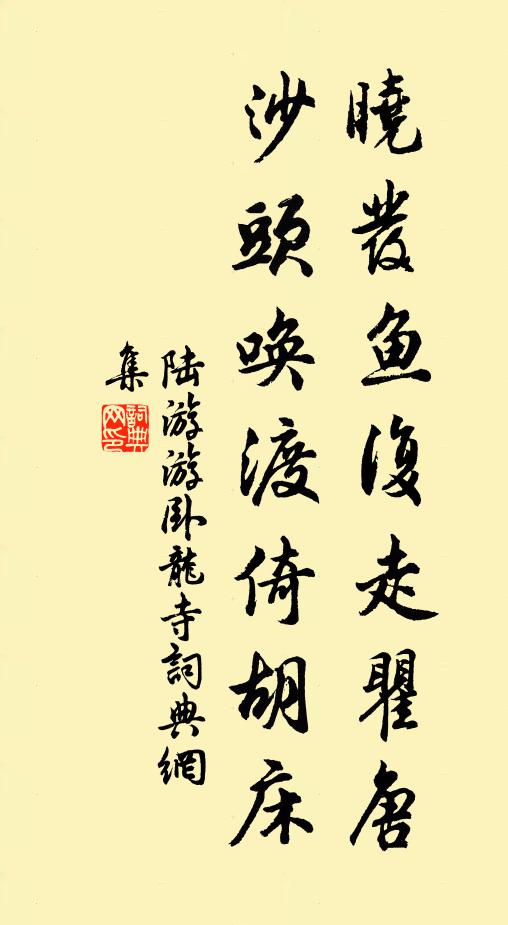 曉發魚復走瞿唐
沙頭喚渡倚胡床
陆游游卧龍寺詞典網
集
詞典网印